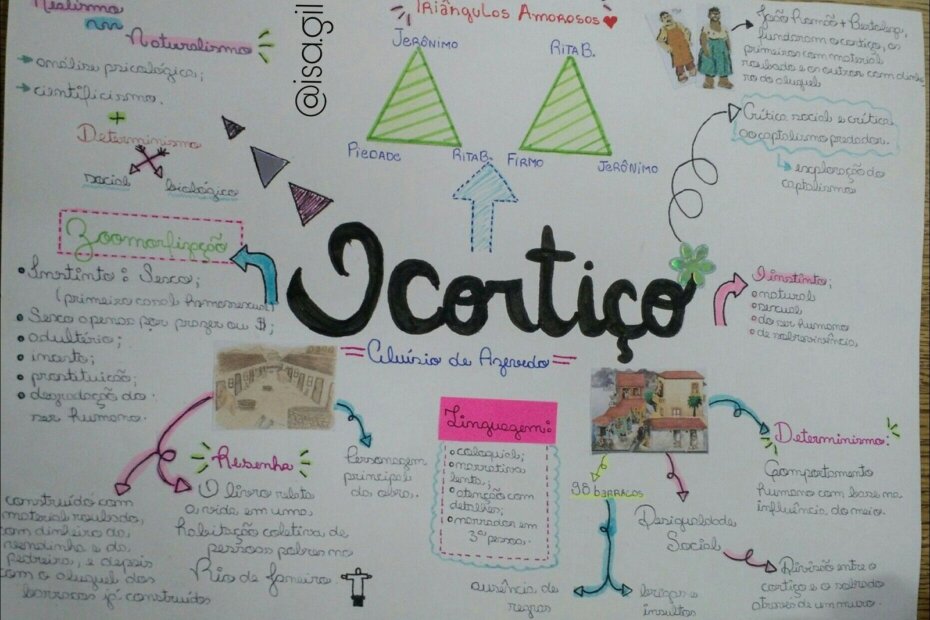 Realismo
Naturalismo
análise psicológica;
cientificismo.
+
Determinismo
social biológico
@isa.gil
Triângulos Amorosos
Jerônimo
Piedade Rita B.
Rita B.
Firmo Jerônimo
João Romão + Bertoleza,
fundaram o cortiço, os
primeiros com material
roubado e os outros com dinhei
ro do aluguel
Crítica social e crítica
ao capitalismo predador.
exploração do
capitalismo
Zoomorfização
Instinto: Sexo;
(primeiro casal homossexual)
Sexo apenas por prazer ou $;
adultério;
incesto;
prostituição;
degradação do
ser humano.
O cortiço
= Aluísio de Azevedo =
O instinto:
natural
sexual
do ser humano
de sobrevivência
construído com
material roubado,
com dinheiro da
vendinha e da
pedreira, e depois
com o aluguel dos
barracos já construídos
Resenha
O livro relata
a vida em uma
habitação coletiva de
pessoas pobres no
Rio de Janeiro
Personagem
principal
da obra.
Linguagem:
coloquial;
narrativa
lenta;
atenção com
detalhes;
narrador em
3ª pessoa.
90 barracos
ausência de
regras
brigas e
insultos
Desigualdade
Social
Divisão entre o
cortiço e o sobrado
através de um muro.
Determinismo:
Comportamento
humano com base na
influência do meio.